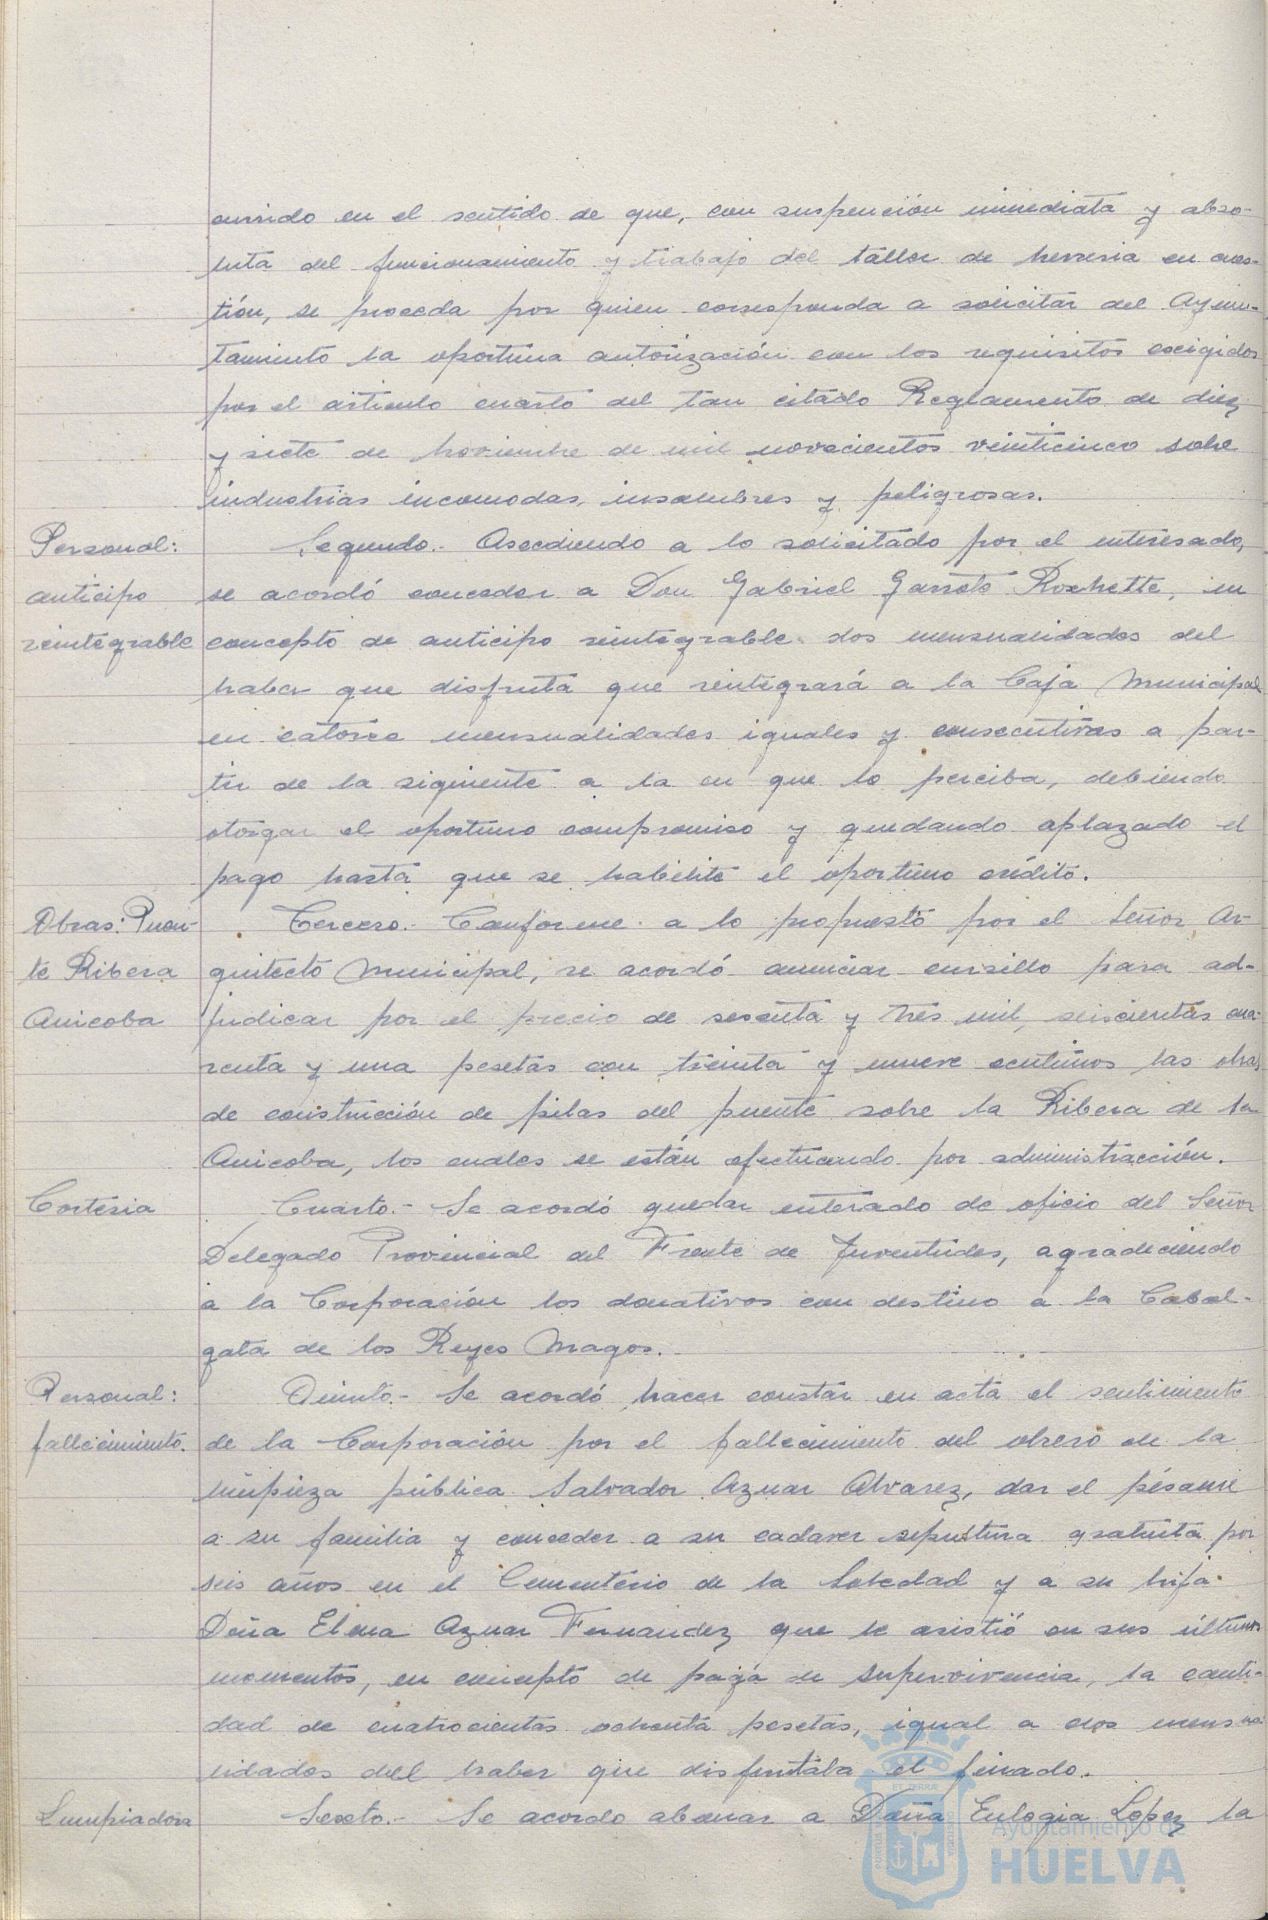 currido en el sentido de que, con suspención inmediata y abso-
luta del funcionamiento y trabajo del taller de herreria en cues-
tión, se proceda por quien corresponda a solicitar del Ayun-
tamiento la oportuna autorización con los requisitos exigidos
por el articulo cuarto del tan citado Reglamento de diez
y siete de noviembre de mil novecientos veinticinco sobre
industrias incomodas, insalubres y peligrosas.
Personal:
anticipo
reintegrable
Segundo.- Accediendo a lo solicitado por el interesado,
se acordó conceder a Don Gabriel Garrote Rochette, en
concepto de anticipo reintegrable dos mensualidades del
haber que disfruta que reintegrará a la Caja Municipal
en catorce mensualidades iguales y consecutivas a par-
tir de la siguiente a la en que lo perciba, debiendo
otorgar el oportuno compromiso y quedando aplazado el
pago hasta que se habilite el oportuno crédito.
Obras: Puen-
te Ribera
Anicoba
Tercero.- Conforme a lo propuesto por el Señor Ar-
quitecto Municipal, se acordó anunciar cursillo para ad-
judicar por el precio de sesenta y tres mil, seiscientas cua-
renta y una pesetas con treinta y nueve centimos las obras
de construcción de pilas del puente sobre la Ribera de la
Anicoba, los cuales se están efectuando por administracción.
Cortesia
Cuarto.- Se acordó quedar enterado de oficio del Señor
Delegado Provincial del Frente de Juventudes, agradeciendo
a la Corporación los donativos con destino a la Cabal-
gata de los Reyes Magos.
Personal:
fallecimiento.
Quinto.- Se acordó hacer constar en acta el sentimiento
de la Corporación por el fallecimiento del obrero de la
limpieza pública Salvador Aznar Alvarez, dar el pésame
a su familia y conceder a su cadaver sepultura gratuita por
seis años en el Cementerio de la Soledad y a su hija
Doña Elena Aznar Fernandez que le asistió en sus últimos
momentos, en concepto de paga de supervivencia, la canti-
dad de cuatrocientas ochenta pesetas, igual a dos mensua-
lidades del haber que disfrutaba el finado.
Limpiadora
Sexto.- Se acordo abonar a Doña Eulogia Lopez la
Ayuntamiento de
HUELVA